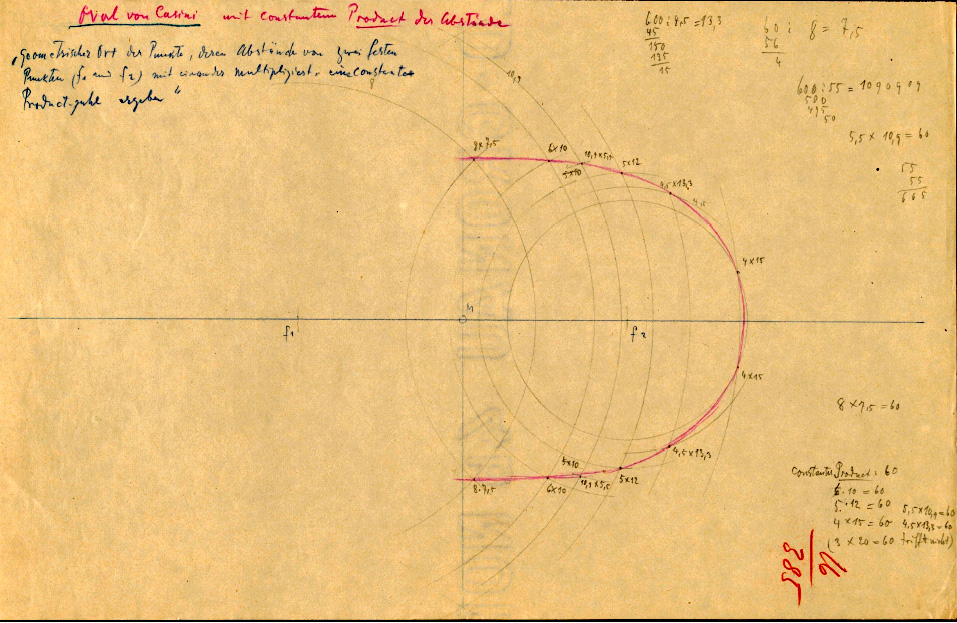 Oval von Casini mit constantem Product der Abstände
„Geometrischer Ort der Punkte, deren Abstände von zwei festen
Punkten (f1 und f2) mit einander multipliziert, eine constante
Product-zahl ergeben“
600 : 4,5 = 13,3
45
150
135
15
60 : 8 = 7,5
56
4
600 : 55 = 10 9 0 9 0 9
500
495
50
5,5 x 10,9 = 60
55
55
605
8
10,9
8 x 7,5
6 x 10
10,9 x 5,5
5 x 12
4,5 x 13,3
4,5
4 x 15
M
f1
f2
4 x 15
4,5 x 13,3
5 x 10
8 · 7,5
6 x 10
10,9 x 5,5
5 x 12
8 x 7,5 = 60
constantes Product : 60
6 · 10 = 60
5 · 12 = 60 5,5 x 10,9 = 60
4 x 15 = 60 4,5 x 13,3 = 60
(3 x 20 = 60 trifft nicht)
385
/97